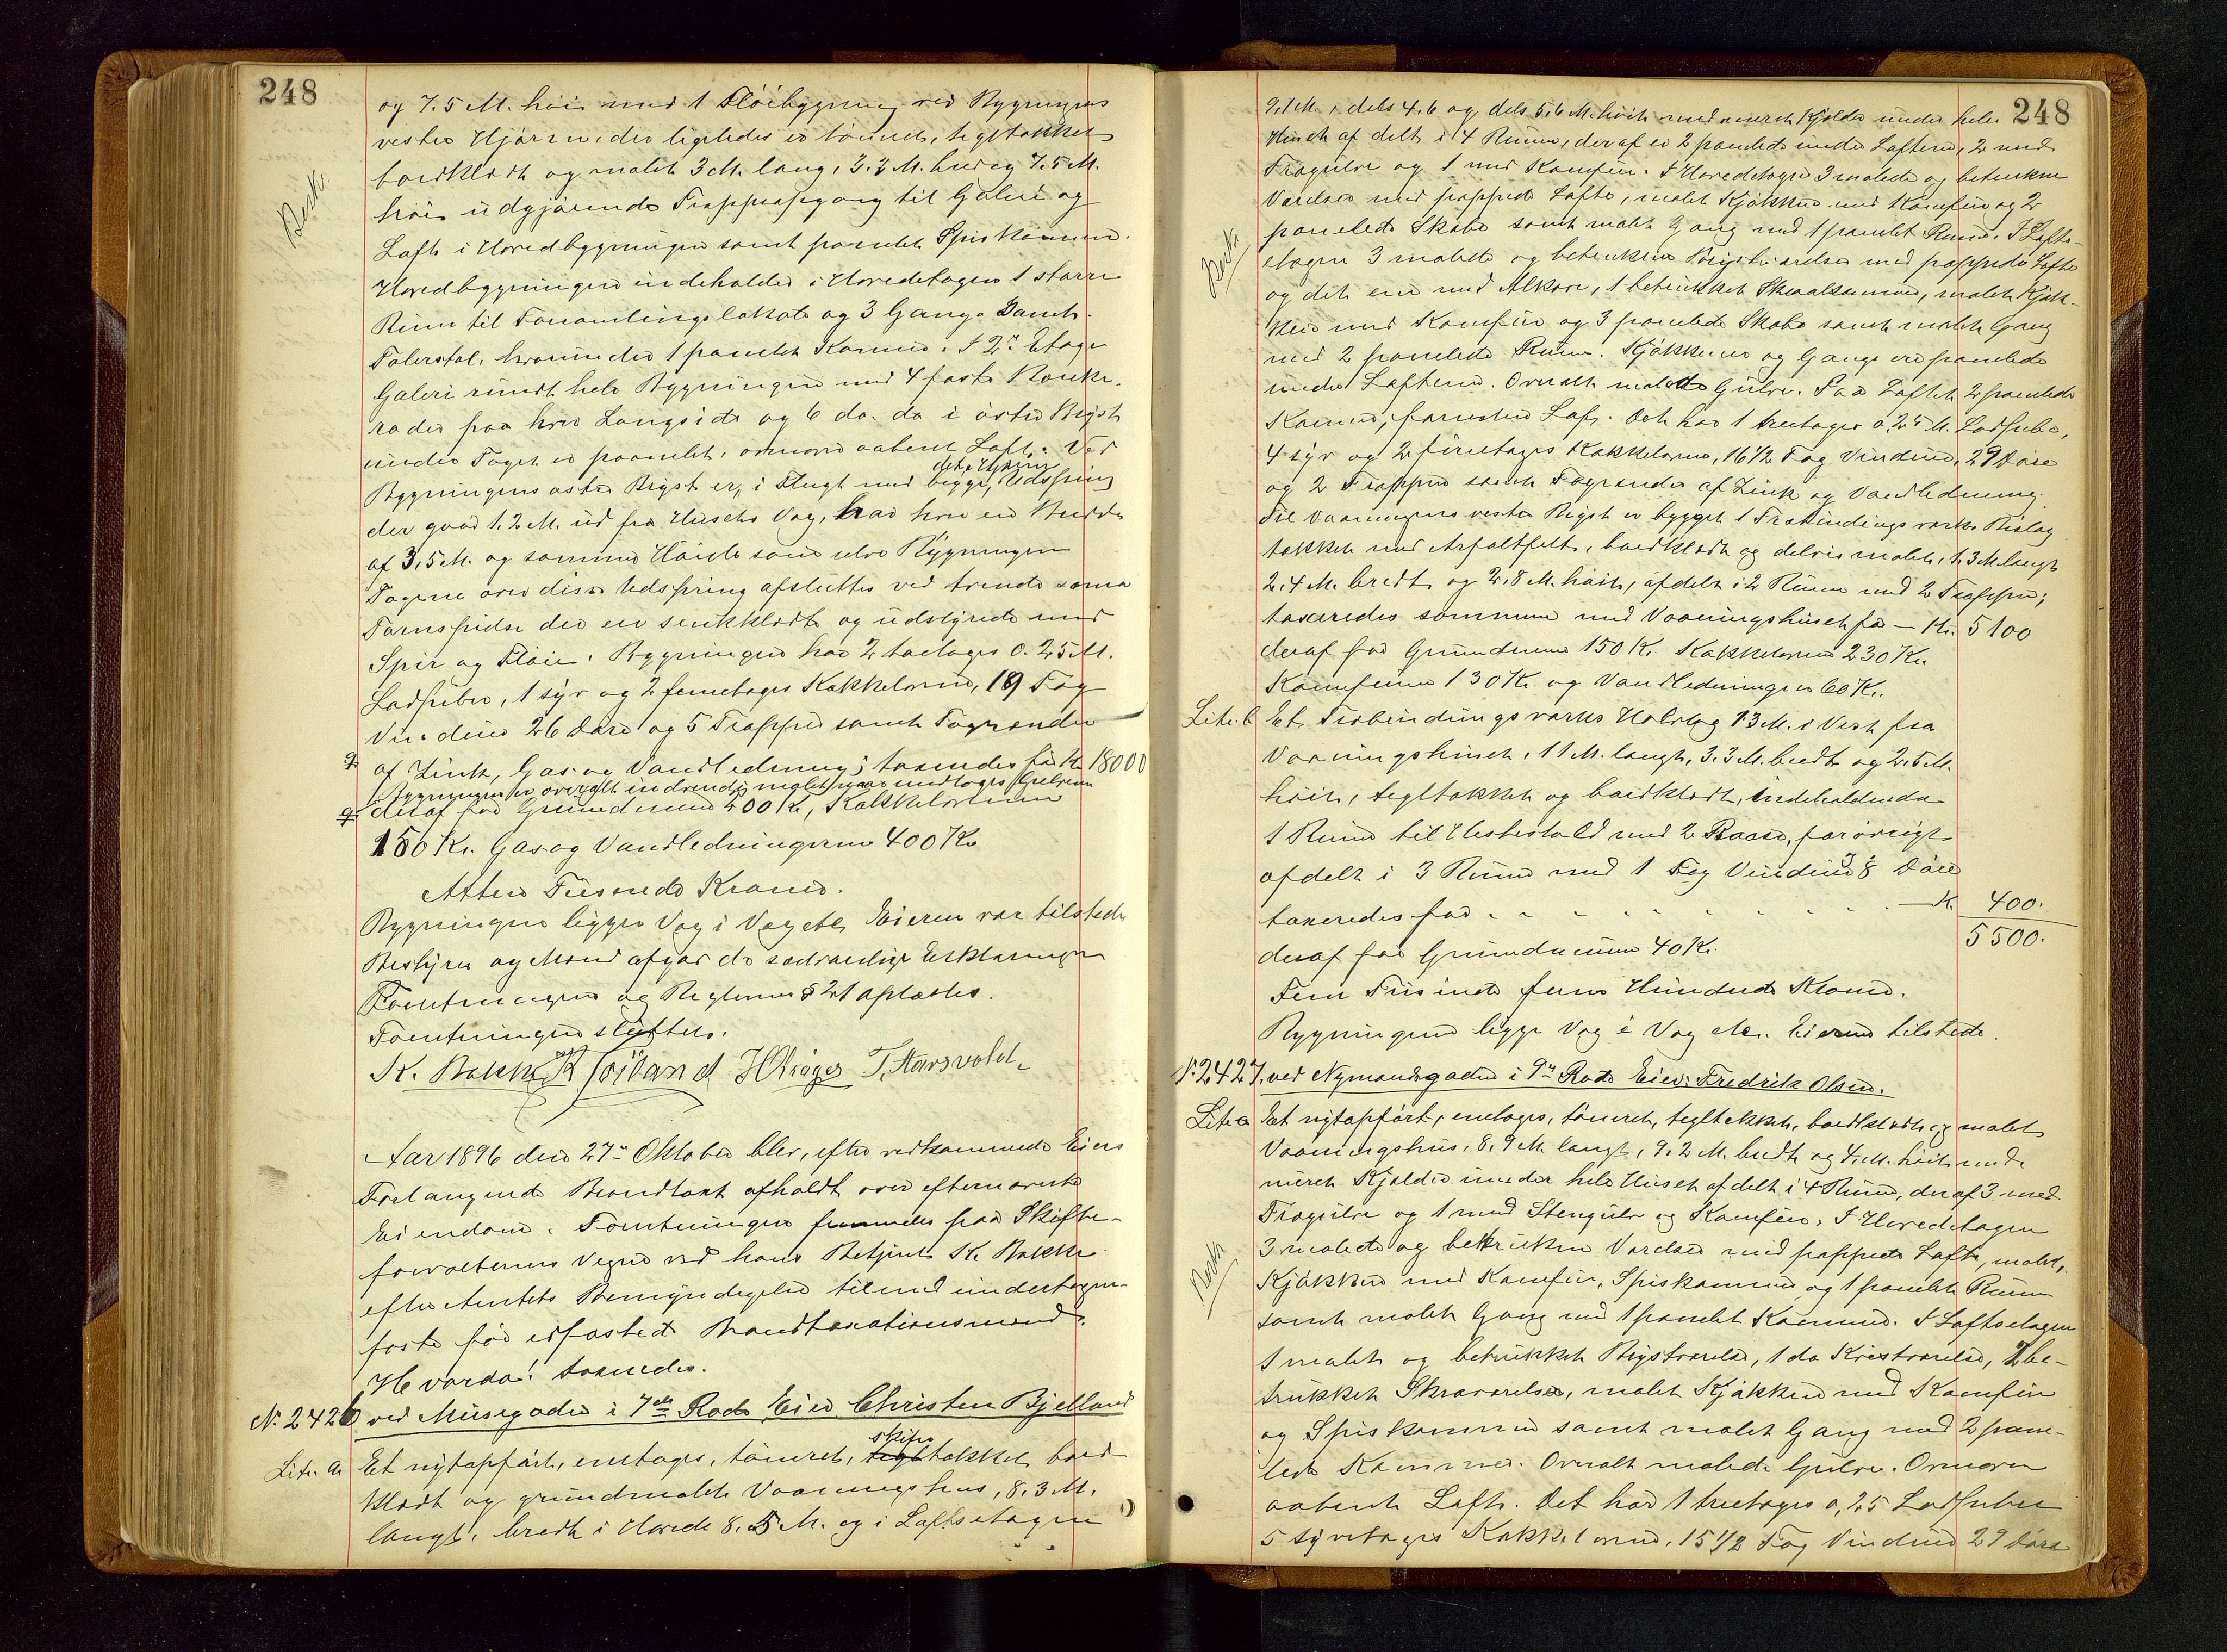 248
og 7.5 M. höi med 1 Flöibygning ved Bygningens
vestre Hjörne, der ligeledes er tömret, tegltækket
bordklædt og malet 3 M. lang, 3.3 M. bred og 7.5 M.
höi udgjörende Trappeopgang til Galeri og
Loft i Hovedbygningen samt panelet Spiskammer.
Hovedbygningen indeholder i Hovedetagen 1 större
Rum til Forsamlingslokale og 3 Gange samt
Talerstol, hvorunder 1 panelet Kammer. I 2n Etage
Galeri rundt hele Bygningen med 4 faste Bænke-
rader paa hver Langside og 6 do. do i östre Bryst
under Taget er panelet, ovenover aabent Loft. Ved
Bygningens östre Bryst er, i Flugt med begge dets Hjörner, Udspring
der gaar 1.2 M. ud fra Husets Væg, har hver en Bredde
af 3,5 M. og samme Höide som selve Bygningen
Tagene over disse Udspring afsluttes ved tvende smaa
Taarnspidse der er zinkklædte og udstyrede med
Spir og Flöie. Bygningen har 2 toetages 0.25 M.
Lodpiber, 1 syv og 2 femetages Kakkelovne, 19 Fag
Vinduer 26 Döre og 5 Trapper samt Tagrender
af Zink, Gas- og Vandledning; taxeredes for Kr 18000
Bygningen er overalt indvendig malet naar undtages Gulvene
deraf for Grundmuren 200 Kr, Kakkelovnene
150 Kr. Gas og Vandledningerne 400 Kr
Atten Tusende Kroner.
Bygningen ligger Væg i Væg etc Eieren var tilstede
Bestyrer og Mænd afgav de sædvanlige Erklæringer
Forretningen og Reglernes § 21 oplæstes.
Forretningen sluttes.
K. Bakke T. Aarsvold
Aar 1896 den 27n Oktober blev, efter vedkommende Eiers
Forlangende Brandtaxt afholdt over efternævnte
Eiendom. Forretningen fremmedes paa Skifte-
forvalterens Vegne ved hans Betjent K. Bakke
efter Amtets Bemyndigelse tilmed undertegne-
faste för edfæstede Brandtaxationsmænd.
Hvorda! taxeredes.
No 2426 ved Musegaden i 7de Rode Eier Christen Bjelland
Litr. a Et nytopfört, enetages, tömret, skifertækket bord-
klædt og grundmalet Vaaningshus, 8.3 M.
langt, bredt i Hovede 8.5 M. og i Loftsetagen
Besk.
248
9,1 M., dels 4,6 og dels 5,6 M. höit med muret Kjælder under hele
Huset afdelt i 4 Rum, deraf er 2 panelede under Lofterne, 2 med
Trægulve og 1 med Komfur. I Hovedetagen 3 malede og betrukne
Værelser med pappede Lofte, malet Kjökken med Komfur og 2
panelede Skabe samt malet Gang med 1 panelet Rum. I Lofts-
etagen 3 malede og betrukne Brystværelser med pappede Lofte
og det ene med Alkove, 1 betrukket Skraakammer, malet Kjök-
ken med Komfur og 3 panelede Skabe samt malet Gang
med 2 panelede Rum. Kjökkener og Gange ere panelede
under Lofterne. Overalt malede Gulve. Paa Loftet 2 panelede
Kammer, forresten Loft. Det har 1 treetages 0.25 M. Lodpibe,
4 syv og 2 fireetages Kakkelovne, 16 1/2 Fag Vinduer, 29 Döre
og 2 Trapper samt Tagrender af Zink og Vandledning.
Til Vaaningens vestre Bryst er bygget 1 Træbindingsværks Bislag
tækket med Asfaltfilt, bordklædt og delvis malet, 1.3 M. langt
2.4 M. bredt og 2.8 M. höit, afdelt i 2 Rum med 2 Trapper;
taxeredes sammen med Vaaningshuset for - Kr. 5100
deraf for Grundmuren 150 Kr. Kakkelovne 230 Kr.
Komfurene 130 Kr. og Vandledningen 60 Kr.
Litr. b Et Træbindingsværks Halvtag 13 M. i Vest fra
Vaaningshuset, 11 M. langt, 3.3 M. bredt og 2.5 M.
höit, tegltækket og bordklædt, indeholdende
1 Rum til Hestestald med 2 Baase, forövrigt
afdelt i 3 Rum med 1 Fag Vinduer og 8 Döre
taxeredes for - Kr. 400.
5500.
deraf for Grundmuren 40 Kr.
Fem Tusinde fem Hundrede Kroner.
Bygningerne ligge Væg i Væg etc. Eieren tilstede.
No 2427. ved Nymandsgaden i 9n Rode Eier: Fredrik Olsen.
Litr. a Et nytopfört, enetages, tömret, tegltækket, bordklædt og malet
Vaaningshus, 8,9 M. langt, 9,2 M. bredt og 4, M. höit med
muret Kjælder under hele Huset afdelt i 4 Rum, deraf 3 med
Trægulve og 1 med Stengulv og Komfur. I Hovedetagen
3 malede og betrukne Værelser med pappede Lofte, malet
Kjökken med Komfur, Spiskammer og 1 panelet Rum
samt malet Gang med 1 panelet Kammer. I Loftsetagen
1 malet og betrukket Brystværelse, 1 do Kvistværelse, 2 be-
trukket Skraaværelser, malet Kjökken med Komfur
og Spiskammer samt malet Gang med 2 pane-
lede Kammer. Overalt malede Gulve. Ovenover
aabent Loft. Det har 1 treetages 0,25 Lodpibe
5 syvetages Kakkelovne, 15 1/2 Fag Vinduer 29 Döre
Besk
Besk